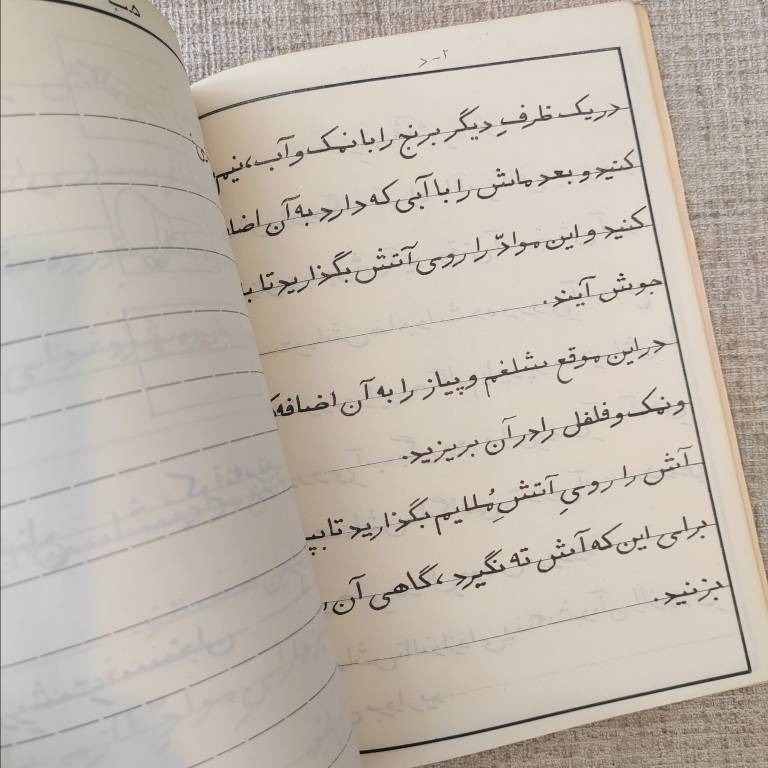 در یک ظرفِ دیگر برنج را با نمک و آب، نیم
کنید و بعد ماش را با آبی که دارد به آن اضا
کنید و این موادّ را روی آتش بگذارید تا ب
جوش آیند.
در این موقع شلغم و پیاز را به آن اضافه
و نمک و فلفل را در آن بریزید.
آش را رویِ آتشِ مُلایم بگذارید تا بپ
برای این که آش ته نگیرد، گاهی آن
بزنید.